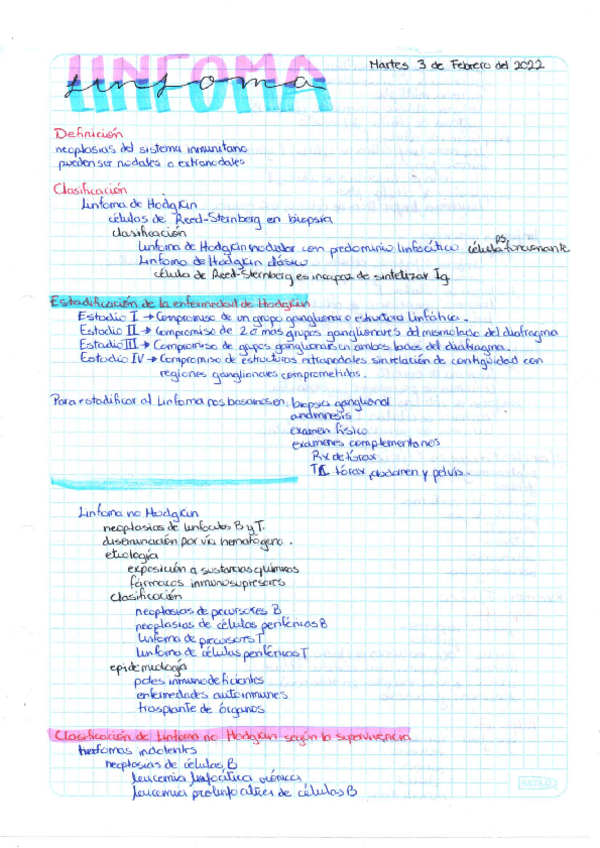 LINFOMA
linfoma
Martes 3 de Febrero del 2022
Definición
neoplasias del sistema inmunitario
pueden ser nodales o extranodales
Clasificación
Linfoma de Hodgkin
células de Reed-Sternberg en biopsia
clasificación
Linfoma de Hodgkin nodular con predominio linfocítico célula ps funcionante
Linfoma de Hodgkin clásico
célula de Reed-Sternberg es incapaz de sintetizar Ig
Estadificación de la enfermedad de Hodgkin
Estadio I → Compromiso de un grupo ganglionar o estructura linfática.
Estadio II → Compromiso de 2 o más grupos ganglionares del mismo lado del diafragma
Estadio III → Compromiso de grupos ganglionares en ambos lados del diafragma.
Estadio IV → Compromiso de estructuras extranodales sin relación de contigüidad con
regiones ganglionares comprometidas.
Para estadificar al linfoma nos basamos en: biopsia ganglional
anamnesis
examen físico
exámenes complementarios
Rx de tórax
TC tórax, abdomen y pelvis.
Linfoma no Hodgkin
neoplasias de linfocitos B y T.
diseminación por vía hematógena.
etiología
exposición a sustancias químicas
fármacos inmunosupresores
clasificación
neoplasias de precursores B
neoplasias de células periféricas B
linfoma de precursores T
linfoma de células periféricas T
epidemiología
pctes inmunodeficientes
enfermedades autoinmunes
trasplante de órganos
Clasificación del Linfoma no Hodgkin según la supervivencia
linfomas indolentes
neoplasias de células B
leucemia linfocítica crónica
leucemia prolinfocítica de células B